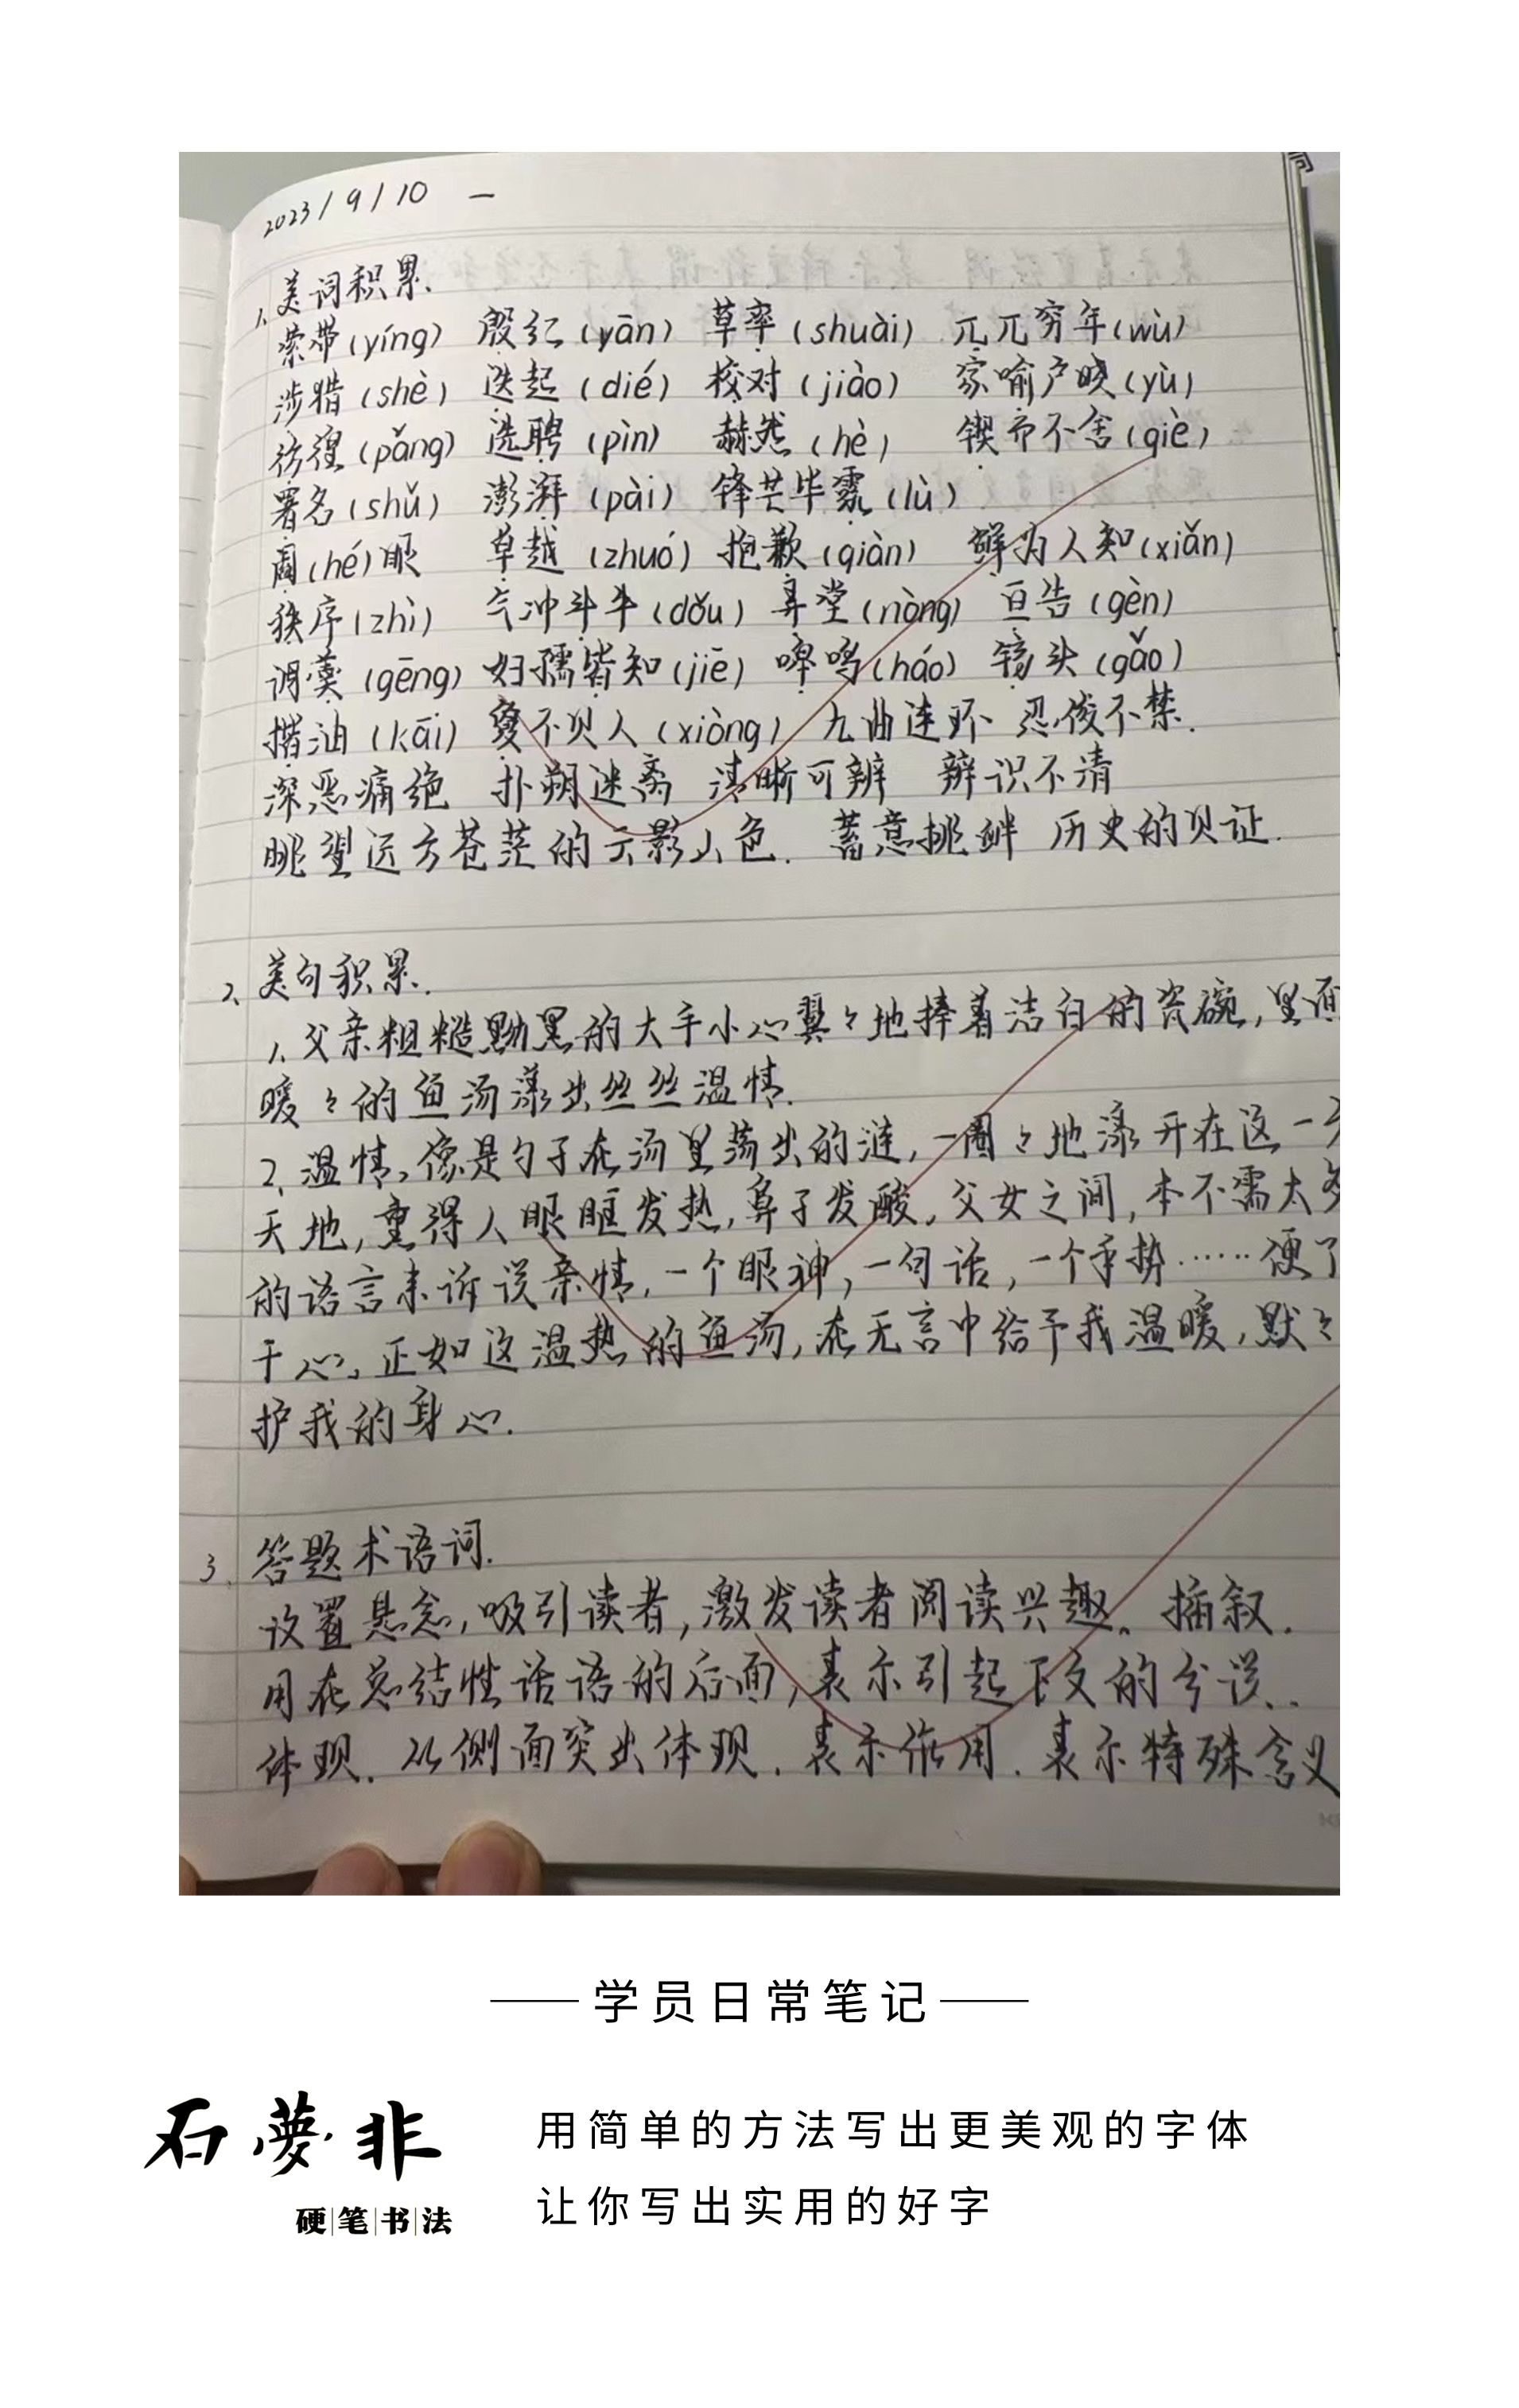 2023/9/10 一
1、美词积累.
萦带(yíng) 殷红(yān) 草率(shuài) 兀兀穷年(wù)
涉猎(shè) 迭起(dié) 校对(jiào) 家喻户晓(yù)
彷徨(pǎng) 选聘(pìn) 赫然(hè) 锲而不舍(qiè)
署名(shǔ) 澎湃(pài) 锋芒毕露(lù)
阖(hé)眼 卓越(zhuó) 抱歉(qiàn) 鲜为人知(xiǎn)
秩序(zhì) 气冲斗牛(dǒu) 弄堂(nòng) 亘告(gèn)
调羹(gēng) 妇孺皆知(jiē) 嗥鸣(háo) 镐头(gǎo)
揩油(kāi) 夐不见人(xiòng) 九曲连环 忍俊不禁.
深恶痛绝 扑朔迷离 清晰可辨 辨识不清
眺望远方苍茫的云影山色. 蓄意挑衅 历史的见证.
2、美句积累.
1、父亲粗糙黝黑的大手小心翼々地捧着洁白的瓷碗,里面
暖々的鱼汤漾出丝丝温情.
2、温情,像是勺子在汤里荡出的涟,一圈々地漾开在这一方
天地,熏得人眼眶发热,鼻子发酸,父女之间,本不需太多
的语言来诉说亲情,一个眼神,一句话,一个手势……便了
于心,正如这温热的鱼汤,在无言中给予我温暖,默々
护我的身心.
3、答题术语词.
设置悬念,吸引读者,激发读者阅读兴趣。插叙.
用在总结性话语的后面,表示引起下文的分说..
体现. 从侧面突出体现. 表示作用. 表示特殊含义
学员日常笔记
石夢非
硬笔书法
用简单的方法写出更美观的字体
让你写出实用的好字